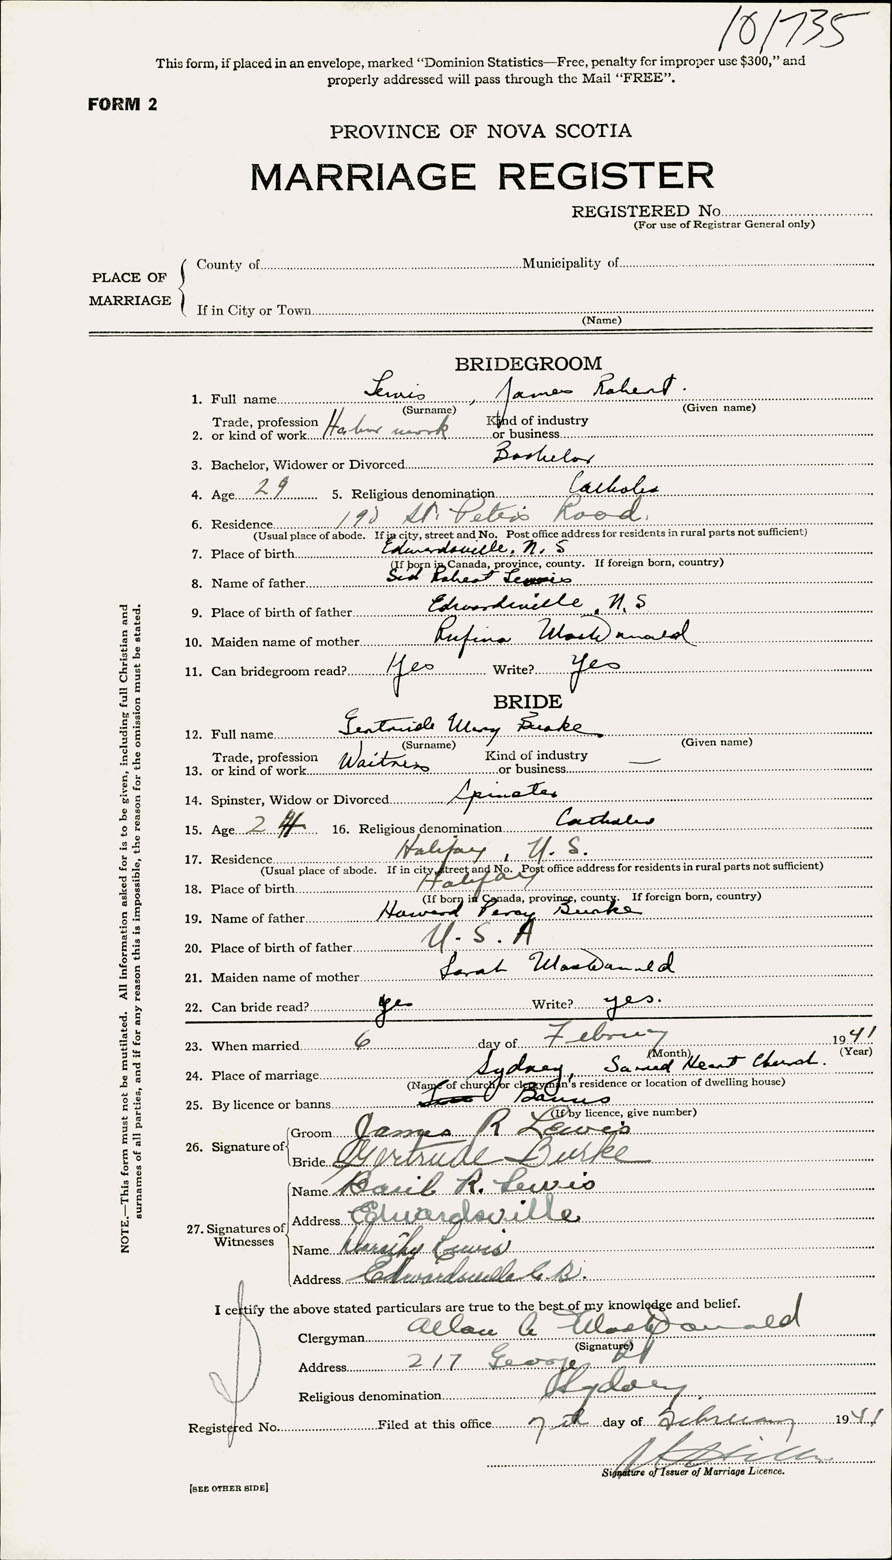 101735
This form, if placed in an envelope, marked "Dominion Statistics—Free, penalty for improper use $300," and
properly addressed will pass through the Mail "FREE".
FORM 2
PROVINCE OF NOVA SCOTIA
MARRIAGE REGISTER
REGISTERED No.
(For use of Registrar General only)
PLACE OF MARRIAGE
County of Municipality of
If in City or Town
(Name)
BRIDEGROOM
1. Full name Lewis, James Robert.
(Surname) (Given name)
2. Trade, profession or kind of work Harbor work Kind of industry or business
3. Bachelor, Widower or Divorced Bachelor
4. Age 29 5. Religious denomination Catholic
6. Residence St. Peter's Road.
(Usual place of abode. If in city, street and No. Post office address for residents in rural parts not sufficient)
7. Place of birth Edwardsville, N.S
(If born in Canada, province, county. If foreign born, country)
8. Name of father Robert Lewis
9. Place of birth of father Edwardsville, N.S
10. Maiden name of mother Rufina MacDonald
11. Can bridegroom read? Yes Write? Yes
BRIDE
12. Full name Gertrude Mary Burke
(Surname) (Given name)
13. Trade, profession or kind of work Waitress Kind of industry or business —
14. Spinster, Widow or Divorced Spinster
15. Age 24 16. Religious denomination Catholic
17. Residence Halifax, N.S.
(Usual place of abode. If in city, street and No. Post office address for residents in rural parts not sufficient)
18. Place of birth Halifax
(If born in Canada, province, county. If foreign born, country)
19. Name of father Howard Percy Burke
20. Place of birth of father U.S.A
21. Maiden name of mother Sarah MacDonald
22. Can bride read? yes Write? yes.
23. When married 6 day of February 1941
(Month) (Year)
24. Place of marriage Sydney, Sacred Heart Church.
(Name of church or clergyman's residence or location of dwelling house)
25. By licence or banns Banns
(If by licence, give number)
26. Signature of Groom James R Lewis
Bride Gertrude Burke
27. Signatures of Witnesses
Name Basil R. Lewis
Address Edwardsville
Name Dorothy Lewis
Address Edwardsville C.B.
I certify the above stated particulars are true to the best of my knowledge and belief.
Clergyman Allan A MacDonald
(Signature)
Address 217 George St
Religious denomination Sydney
Registered No. Filed at this office 7th day of February 1941
Signature of Issuer of Marriage Licence.
[SEE OTHER SIDE]
NOTE.—This form must not be mutilated. All information asked for is to be given, including full Christian and
surnames of all parties, and if for any reason this is impossible, the reason for the omission must be stated.